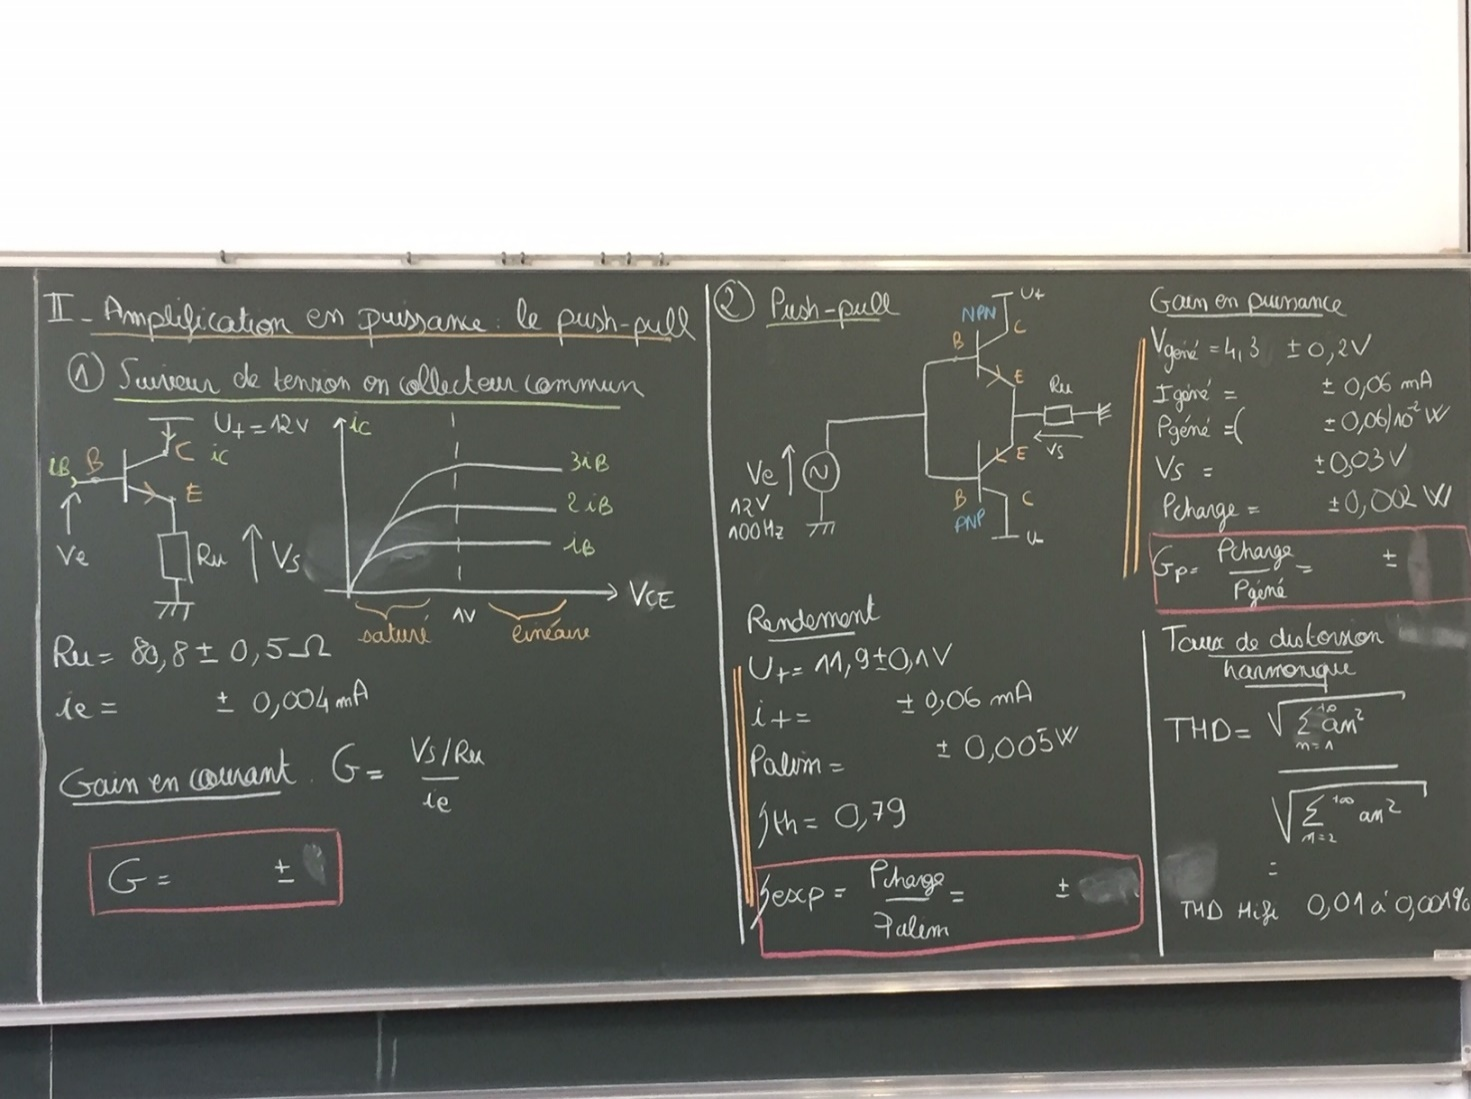 II - Amplification en puissance : le push-pull
① Suiveur de tension en collecteur commun
U+ = 12V
iB B C ic
E
Ve
Ru Vs
ic
3iB
2iB
iB
VCE
1V
saturé linéaire
Ru = 80,8 ± 0,5 Ω
ie = ± 0,004 mA
Gain en courant . G = Vs/Ru
ie
G = ±
② Push-pull
U+
NPN
B C
E
Ru
Vs
Ve
12V
100Hz
E
B C
PNP
U-
Rendement
U+ = 11,9 ± 0,1V
i+ = ± 0,06 mA
Palim = ± 0,005 W
ηth = 0,79
ηexp = Pcharge =  ±
Palim
Gain en puissance
Vgéné = 4,3 ± 0,2V
Igéné = ± 0,06 mA
Pgéné = ( ± 0,06)10⁻² W
Vs = ± 0,03 V
Pcharge = ± 0,002 W
Gp = Pcharge = ±
Pgéné
Taux de distorsion
harmonique
THD = √ Σ an²
n=1
√ Σ +∞ an²
n=2
=
THD Hifi 0,01 à 0,001%